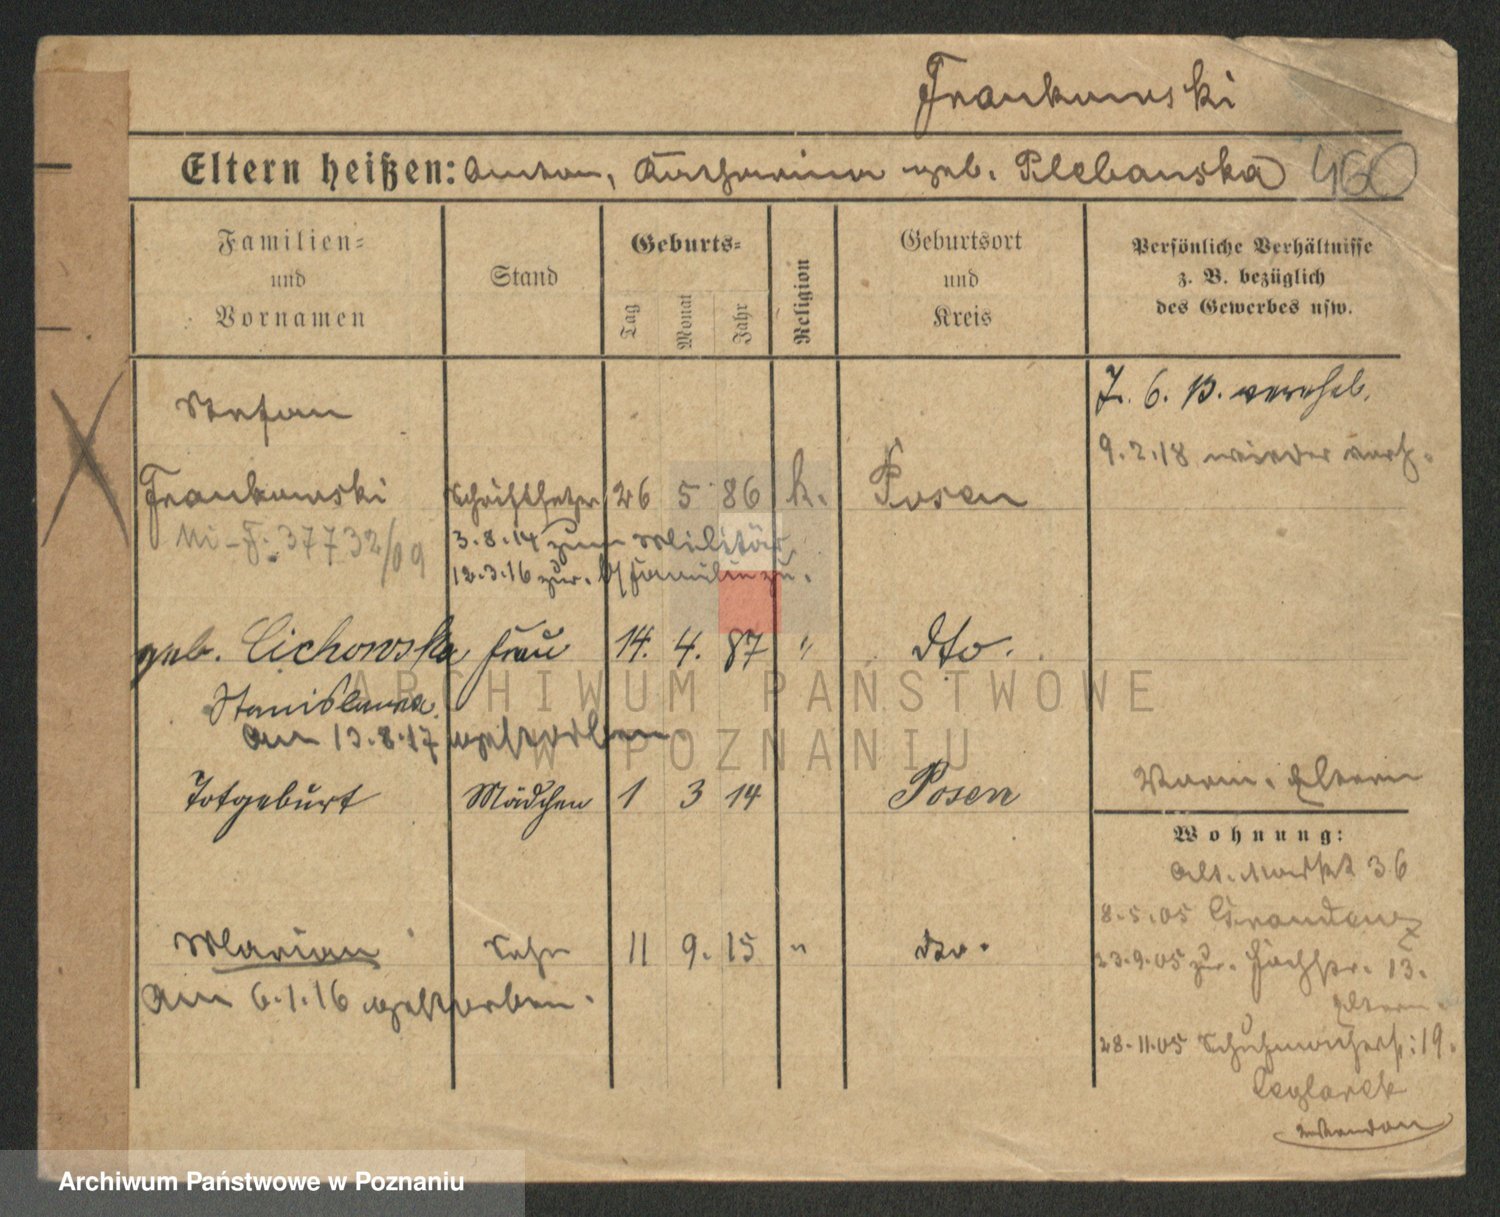 Frankowski
Eltern heißen: Anton, Katharina geb. Plebanska 460
Familien=
und
Vornamen
Stand
Geburts=
Tag
Monat
Jahr
Religion
Geburtsort
und
Kreis
Persönliche Verhältnisse
z. B. bezüglich
des Gewerbes usw.
7. 6. 13. verehel.
Stefan
9.2.18 wieder verh.
Frankowski Schriftsetzer 26 5 86 k. Posen
37732/09
3.8.14 zum Militär
12.3.16 zur. Familie zu.
geb. Cichowska Frau 14. 4. 87 " dto.
Stanislawa
am 13.8.17 gestorben.
Totgeburt Mädchen 1 3 14 Posen
Eltern
Wohnung:
Alt. Markt 36
8.5.05 Graudenz
23.9.05 zur. 13.
Eltern.
Marian Sohn 11 9. 15 " dto.
am 6.1.16 gestorben.
28.11.05 Schuhmacherstr: 19.
Ceglarek
ARCHIWUM PAŃSTWOWE
W POZNANIU
Archiwum Państwowe w Poznaniu